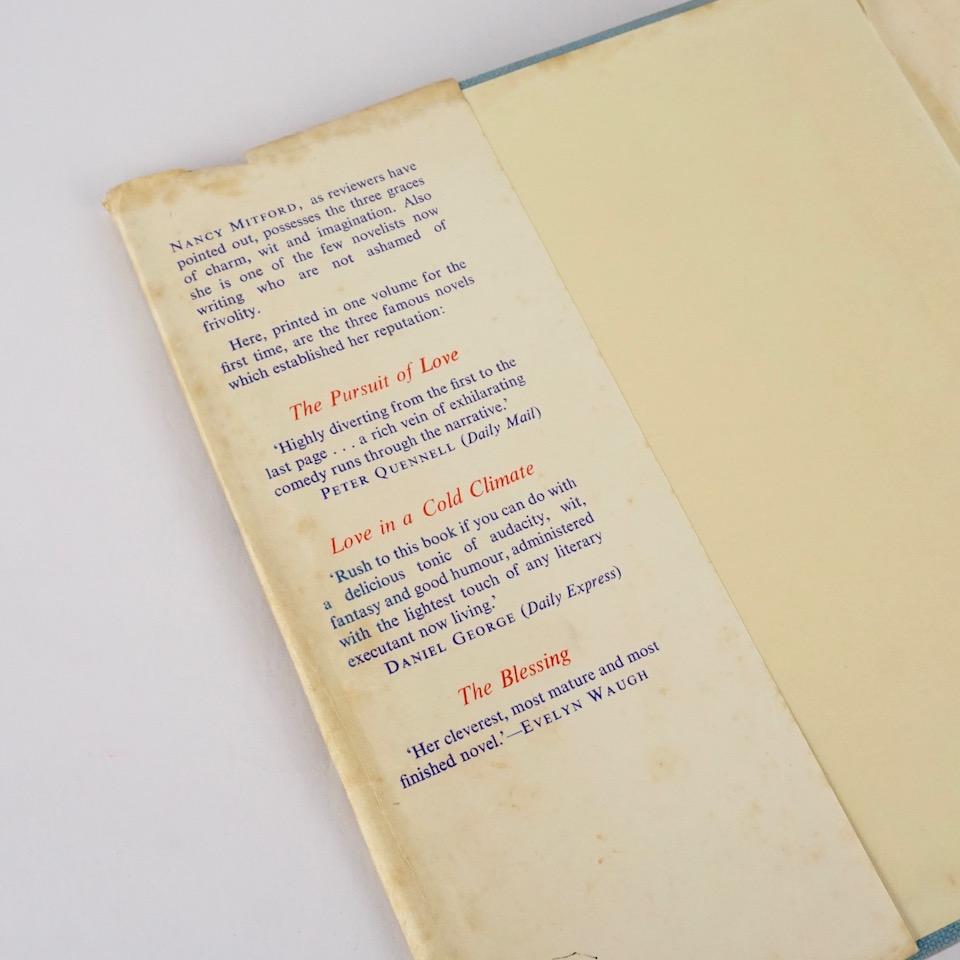 NANCY MITFORD, as reviewers have
pointed out, possesses the three graces
of charm, wit and imagination. Also
she is one of the few novelists now
writing who are not ashamed of
frivolity.
Here, printed in one volume for the
first time, are the three famous novels
which established her reputation:
The Pursuit of Love
‘Highly diverting from the first to the
last page . . . a rich vein of exhilarating
comedy runs through the narrative,’
PETER QUENNELL (Daily Mail)
Love in a Cold Climate
‘Rush to this book if you can do with
a delicious tonic of audacity, wit,
fantasy and good humour, administered
with the lightest touch of any literary
executant now living.’
DANIEL GEORGE (Daily Express)
The Blessing
‘Her cleverest, most mature and most
finished novel.’—EVELYN WAUGH